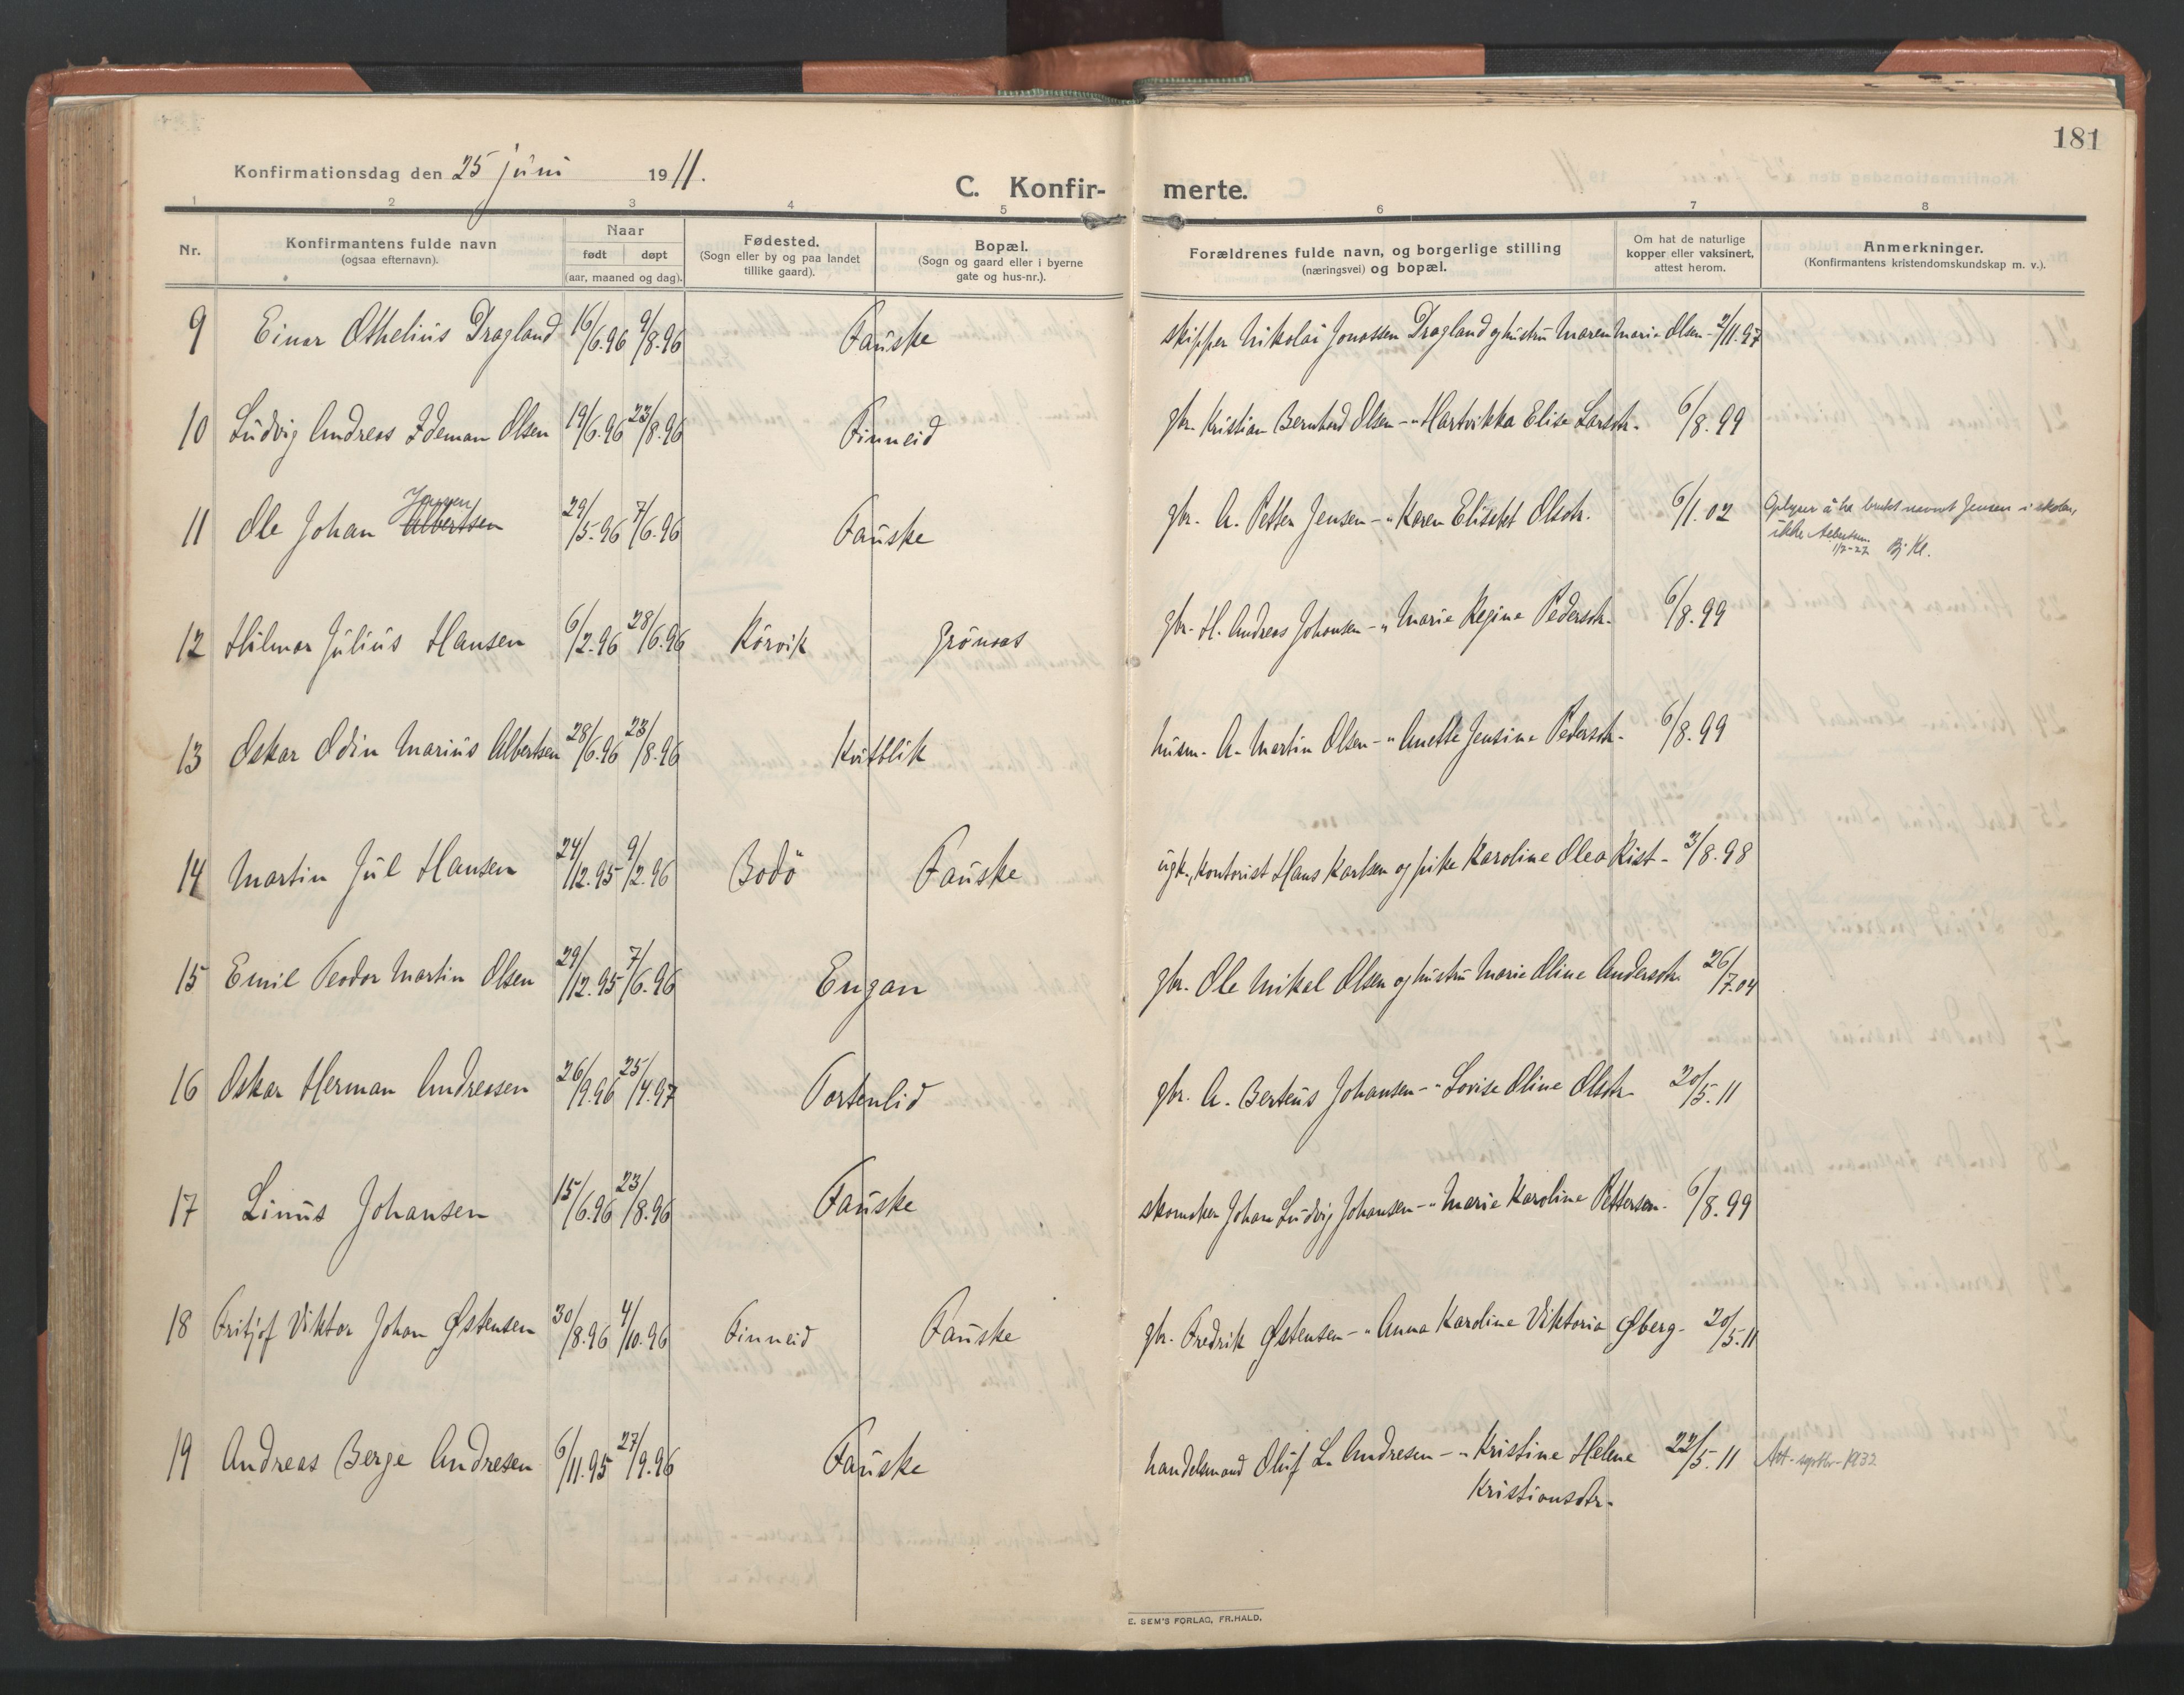 181
Konfirmationsdag den 25 juni 1911.
C. Konfir- merte.
1 2 3 4 5 6 7 8
Nr.
Konfirmantens fulde navn
(ogsaa efternavn).
Naar
født døpt
(aar, maaned og dag).
Fødested.
(Sogn eller by og paa landet
tillike gaard).
Bopæl.
(Sogn og gaard eller i byerne
gate og hus-nr.).
Forældrenes fulde navn, og borgerlige stilling
(næringsvei) og bopæl.
Om hat de naturlige
kopper eller vaksinert,
attest herom.
Anmerkninger.
(Konfirmantens kristendomskundskap m. v.).
9 Einar Othelius Dragland 16/6.96 9/8.96 Fauske skipper Nikolai Jonassen Dragland og hustru Maren Marie Olsen - 2/11.97
10 Ludvig Andreas Ideman Olsen 19/6.96 23/8.96 Finneid gbr. Kristian Bernhard Olsen - " Hartvikka Elise Larsdtr. 6/8.99
11 Ole Johan Albertsen 29/5.96 7/6.96 Fauske gbr. A. Petter Jensen - " Karen Elisabet Olsdtr. 6/1.02
Jensen
Oplyser å ha brukt navnet Jensen i skolen,
ikke Albertsen.
1/2-27 Bj. Kl.
12 Hilmar Julius Hansen 6/2.96 28/6.96 Körvik Grönaas gbr. H. Andreas Johansen - " Marie Regine Pedersdtr. 6/8.99
13 Oskar Odin Marius Albertsen 28/6.96 23/8.96 Kvitblik husm. A. Martin Olsen - " Anette Jensine Pedersdtr. 6/8.99
14 Martin Jul Hansen 24/12.95 9/2.96 Bodö Fauske ugk., kontorist Hans Karlsen og pike Karoline Olea Kist - 3/8.98
15 Emil Teodor Martin Olsen 29/12.95 7/6.96 Engan gbr. Ole Mikal Olsen og hustru Marie Oline Andersdtr. 26/7.04
16 Oskar Herman Andreasen 26/9.96 25/4.97 Tortenlid gbr. A. Berteus Johansen - " Lovise Oline Olsdtr. 20/5.11
17 Linus Johansen 15/6.96 23/8.96 Fauske skomaker Johan Ludvig Johansen - " Marie Karoline Pettersen. 6/8.99
18 Fritjof Viktor Johan Østensen 30/8.96 4/10.96 Finneid Fauske gbr. Fredrik Østensen - " Anna Karoline Viktoria Øberg - 20/5.11
19 Andreas Berge Andresen 6/11.95 27/9.96 Fauske handelsmand Oluf L. Andresen - " Kristine Helene 22/5.11 Att. septbr. 1932
Kristiansdtr.
E. SEM'S FORLAG, FR.HALD.